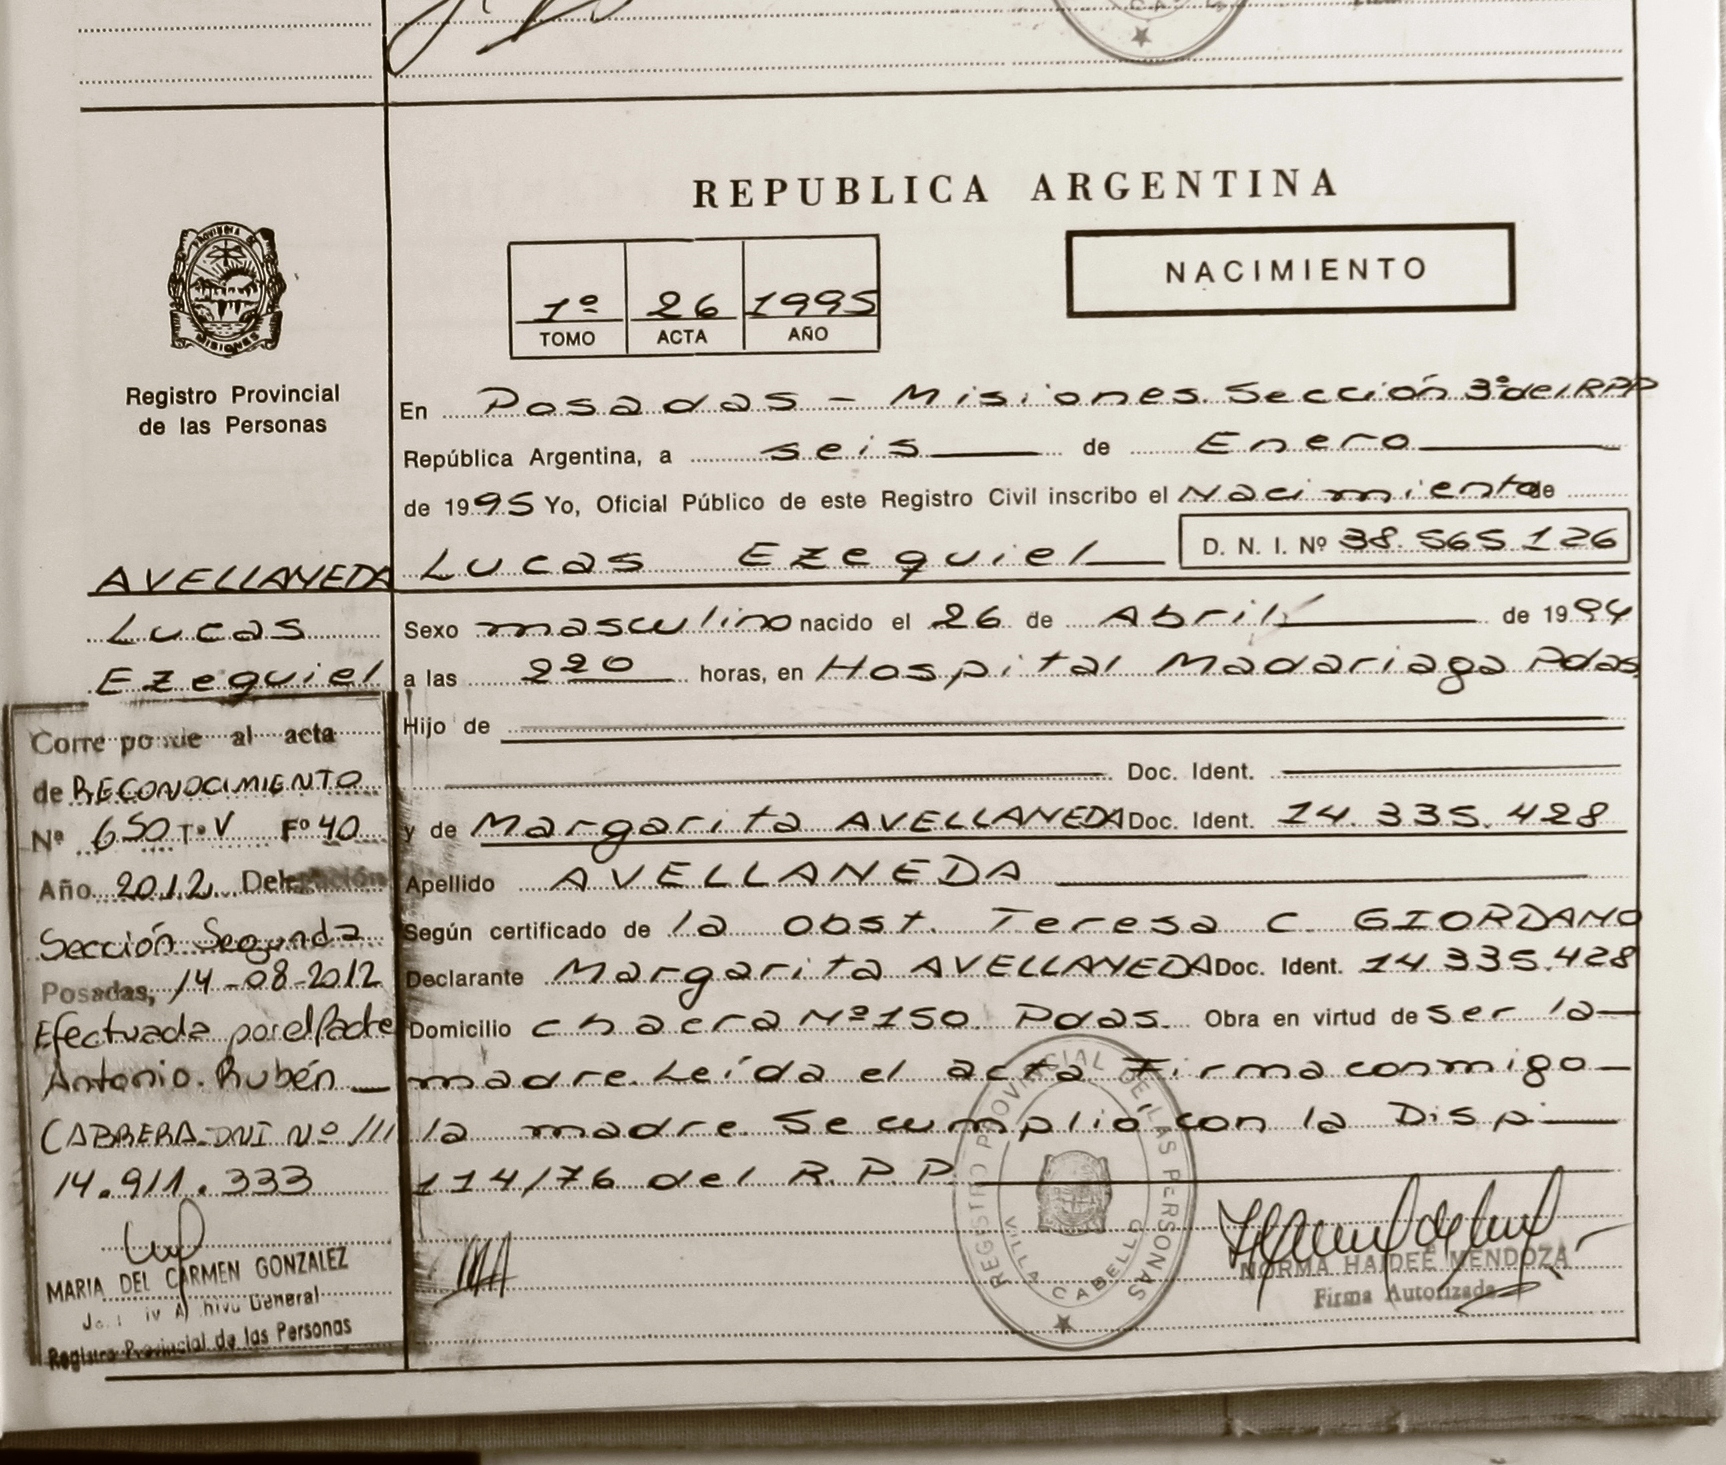 REPUBLICA ARGENTINA
PROVINCIA DE
MISIONES
Registro Provincial
de las Personas
1º 26 1995
TOMO ACTA AÑO
NACIMIENTO
En Posadas - Misiones. Sección 3ª del RPP
República Argentina, a seis de Enero
de 1995 Yo, Oficial Público de este Registro Civil inscribo el Nacimiento de
Lucas Ezequiel D. N. I. Nº 38.565.126
Sexo masculino nacido el 26 de Abril de 1994
a las 2 20 horas, en Hospital Madariaga Pdas
Hijo de
Doc. Ident.
y de Margarita AVELLANEDA Doc. Ident. 14.335.428
Apellido AVELLANEDA
Según certificado de la Obst. Teresa C. GIORDANO
Declarante Margarita AVELLANEDA Doc. Ident. 14.335.428
Domicilio chacra Nº 150. Pdas. Obra en virtud de ser la
madre. Leída el acta Firma conmigo
la madre. Se cumplió con la Disp.
114/76 del R.P.P.
REGISTRO PROVINCIAL DE LAS PERSONAS
VILLA CABELLO
NORMA HAIDEE MENDOZA
Firma Autorizada
AVELLANEDA
Lucas
Ezequiel
Corresponde al acta
de RECONOCIMIENTO
Nº 650 Tº V Fº 40
Año 2012 Delegación
Sección Segunda
Posadas, 14-08-2012
Efectuada por el Padre
Antonio Rubén
CABRERA DNI Nº ///
14.911.333
MARIA DEL CARMEN GONZALEZ
General
Registro Provincial de las Personas